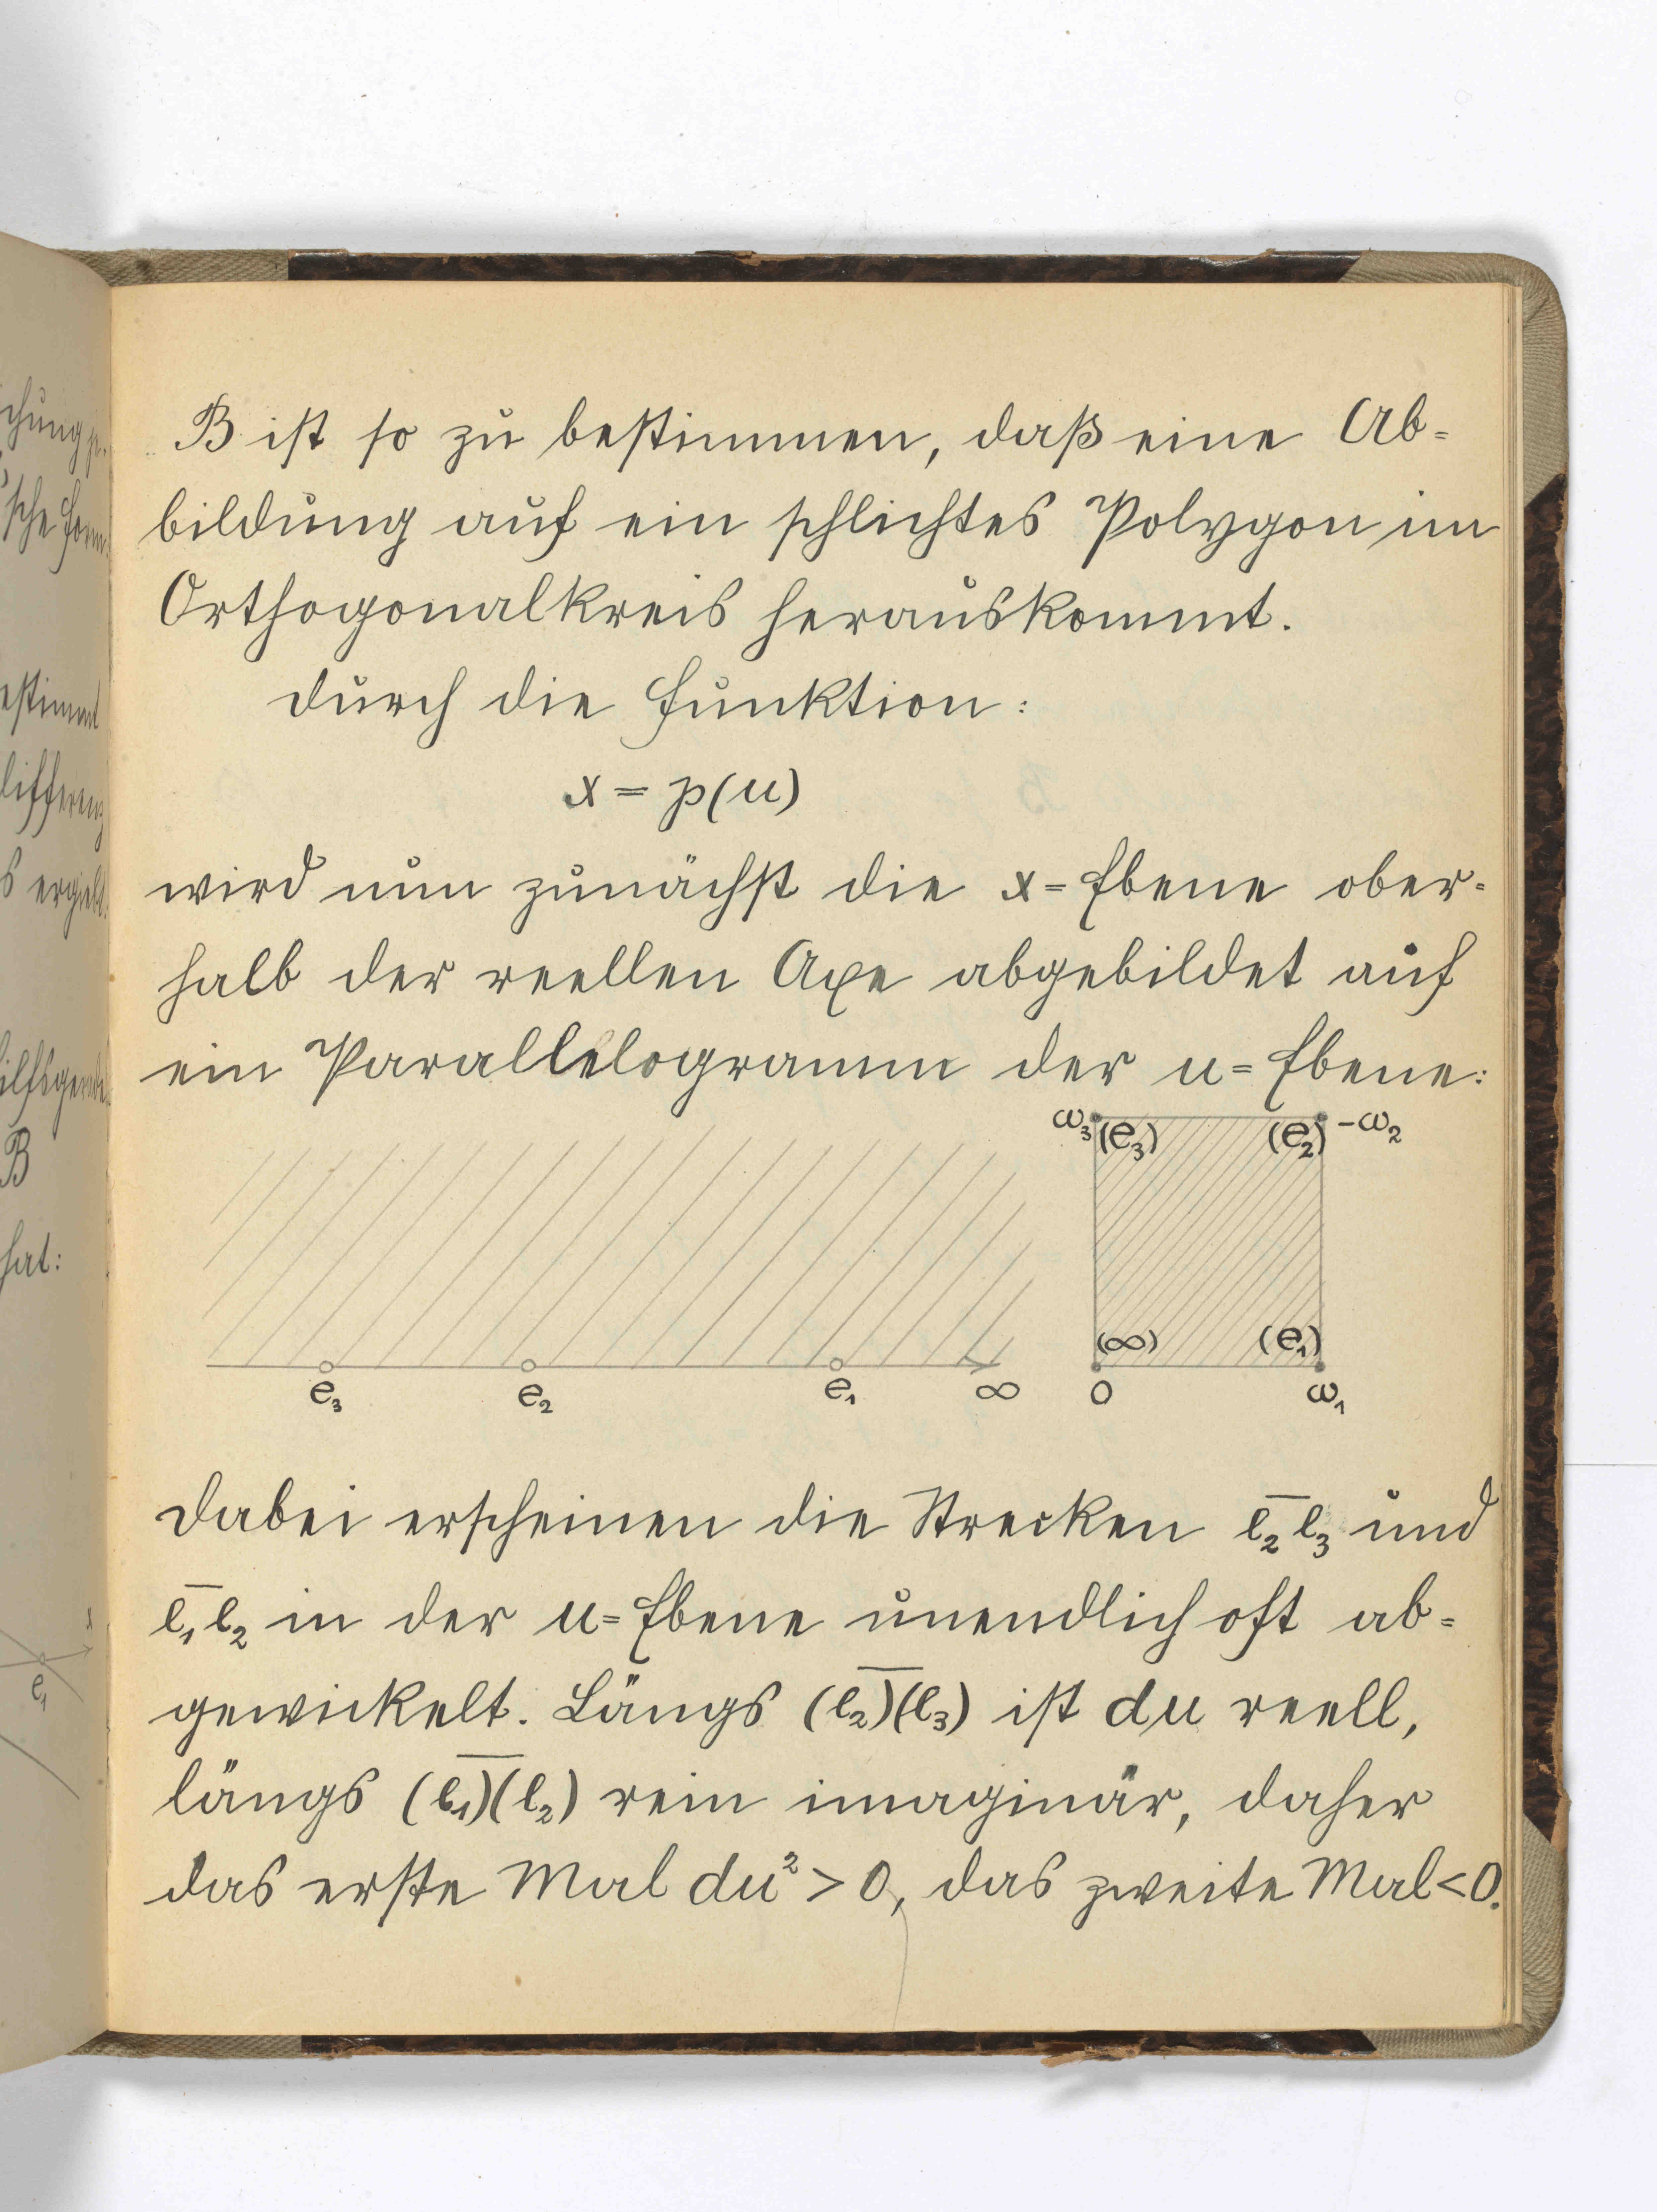 B ist so zu bestimmen, daß eine Ab-
bildung auf ein schlichtes Polygon im
Orthogonalkreis herauskommt.
Durch die Funktion:
x = p(u)
wird nun zunächst die x-Ebene ober-
halb der reellen Axe abgebildet auf
ein Parallelogramm der u-Ebene:
ω₃ (e₃) (e₂) -ω₂
(∞) (e₁)
e₃ e₂ e₁ ∞ 0 ω₁
Dabei erscheinen die Strecken e̅₂e₃ und
e̅₁e₂ in der u-Ebene unendlich oft ab-
gewickelt. Längs (e₂)(e₃) ist du reell,
längs (e₁)(e₂) rein imaginär, daher
das erste Mal du² > 0, das zweite Mal < 0.
chung
sche Form
estimmt
differenz
s ergiebt.
B
hat:
x
e₁